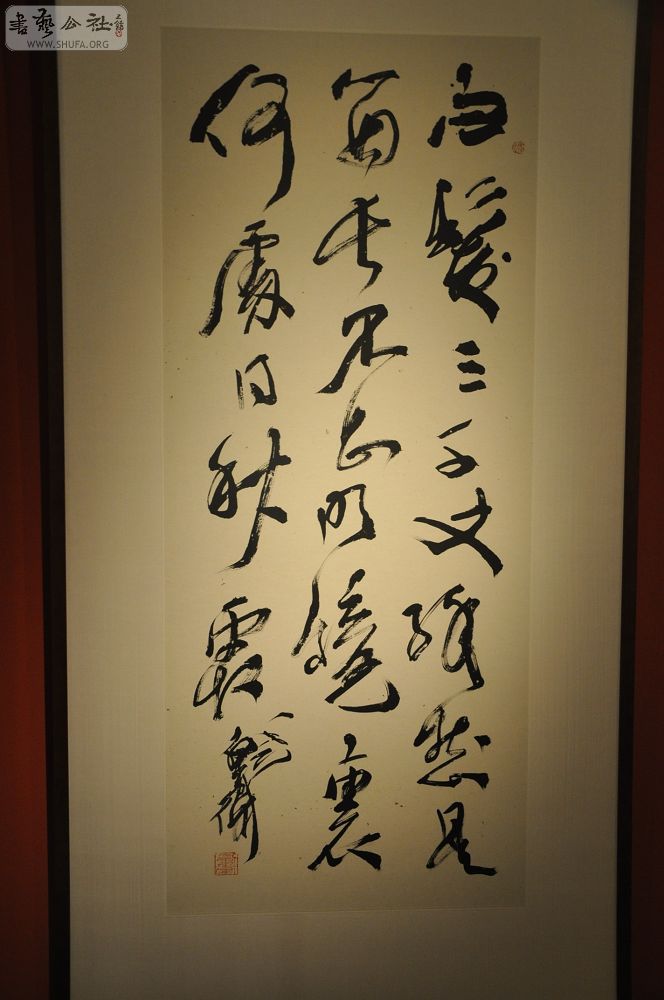 書藝公社
WWW.SHUFA.ORG
白髮三千丈緣愁是
箇長不知明鏡裏
何處得秋霜